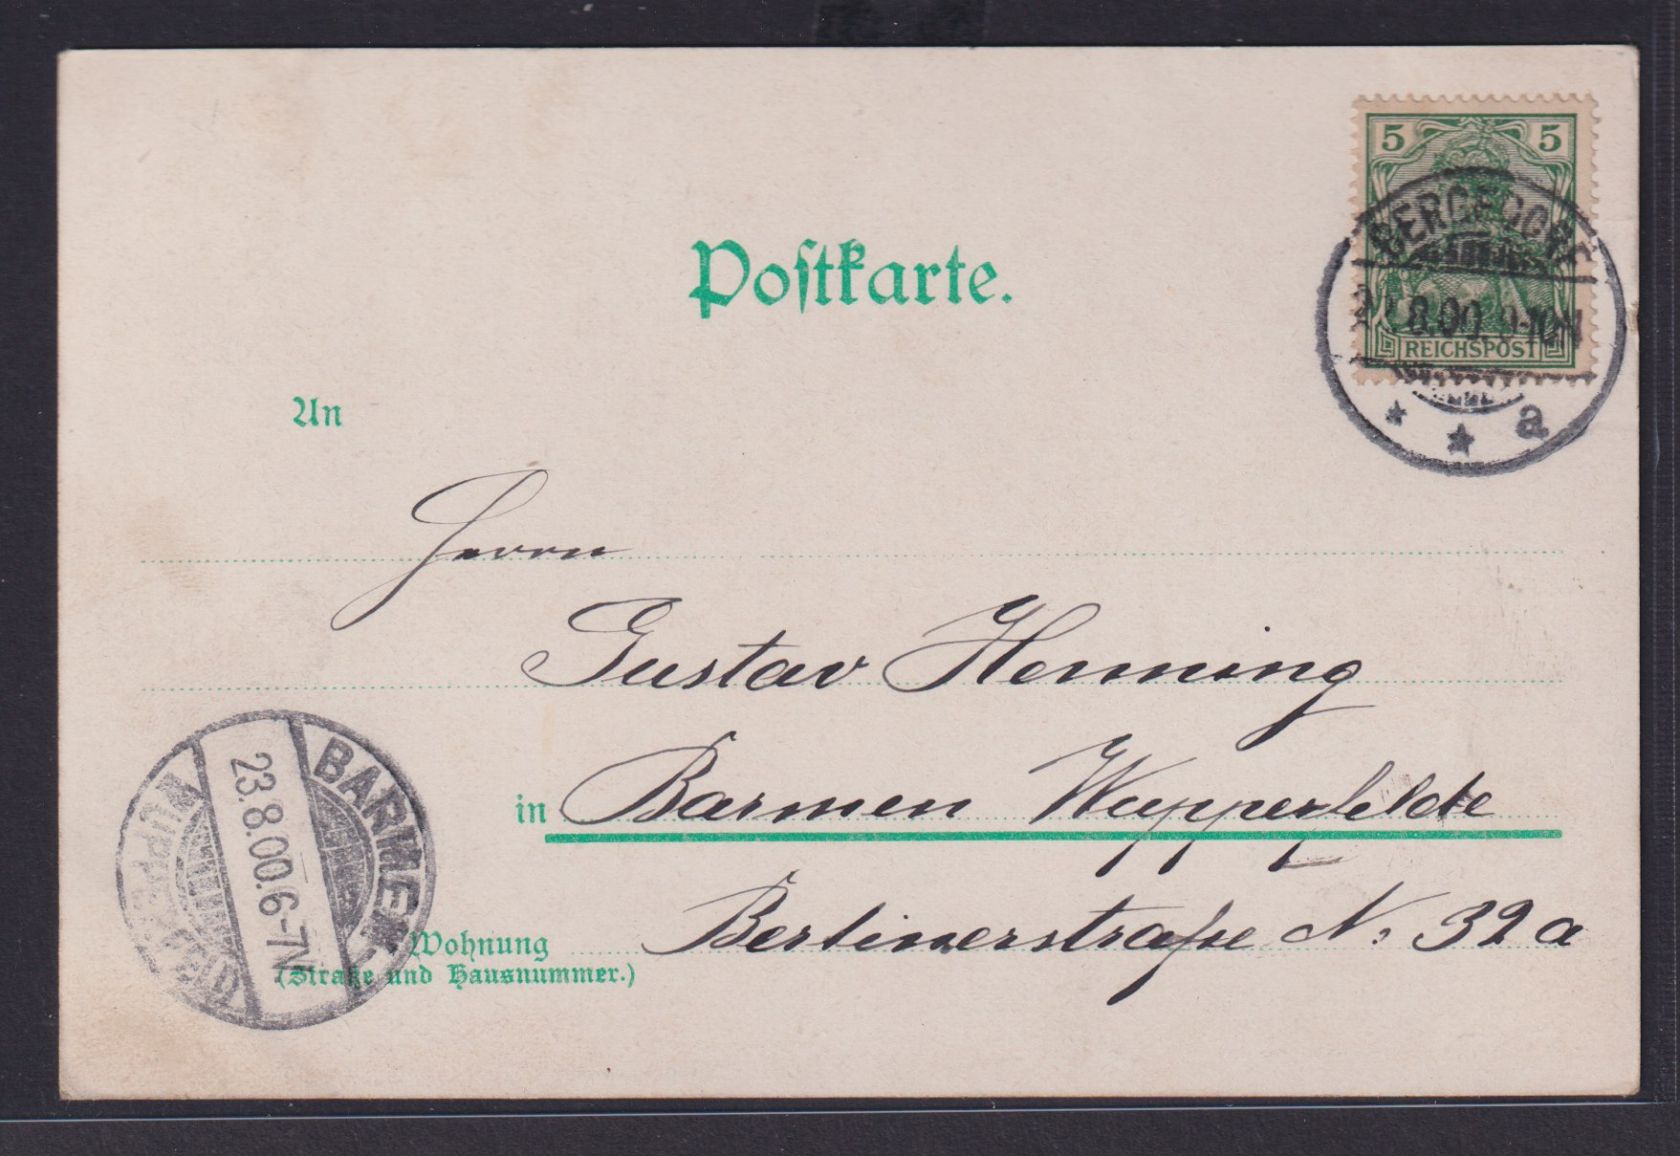 5 5
BERGEDORF
8.00. 9-10N
REICHSPOST
a
Postkarte.
An
Herrn
Gustav Henning
in Barmen Wupperfelde
Berlinerstraße N: 32a
Wohnung
(Straße und Hausnummer.)
BARMEN
23.8.00.6-7N
WUPPERFELD